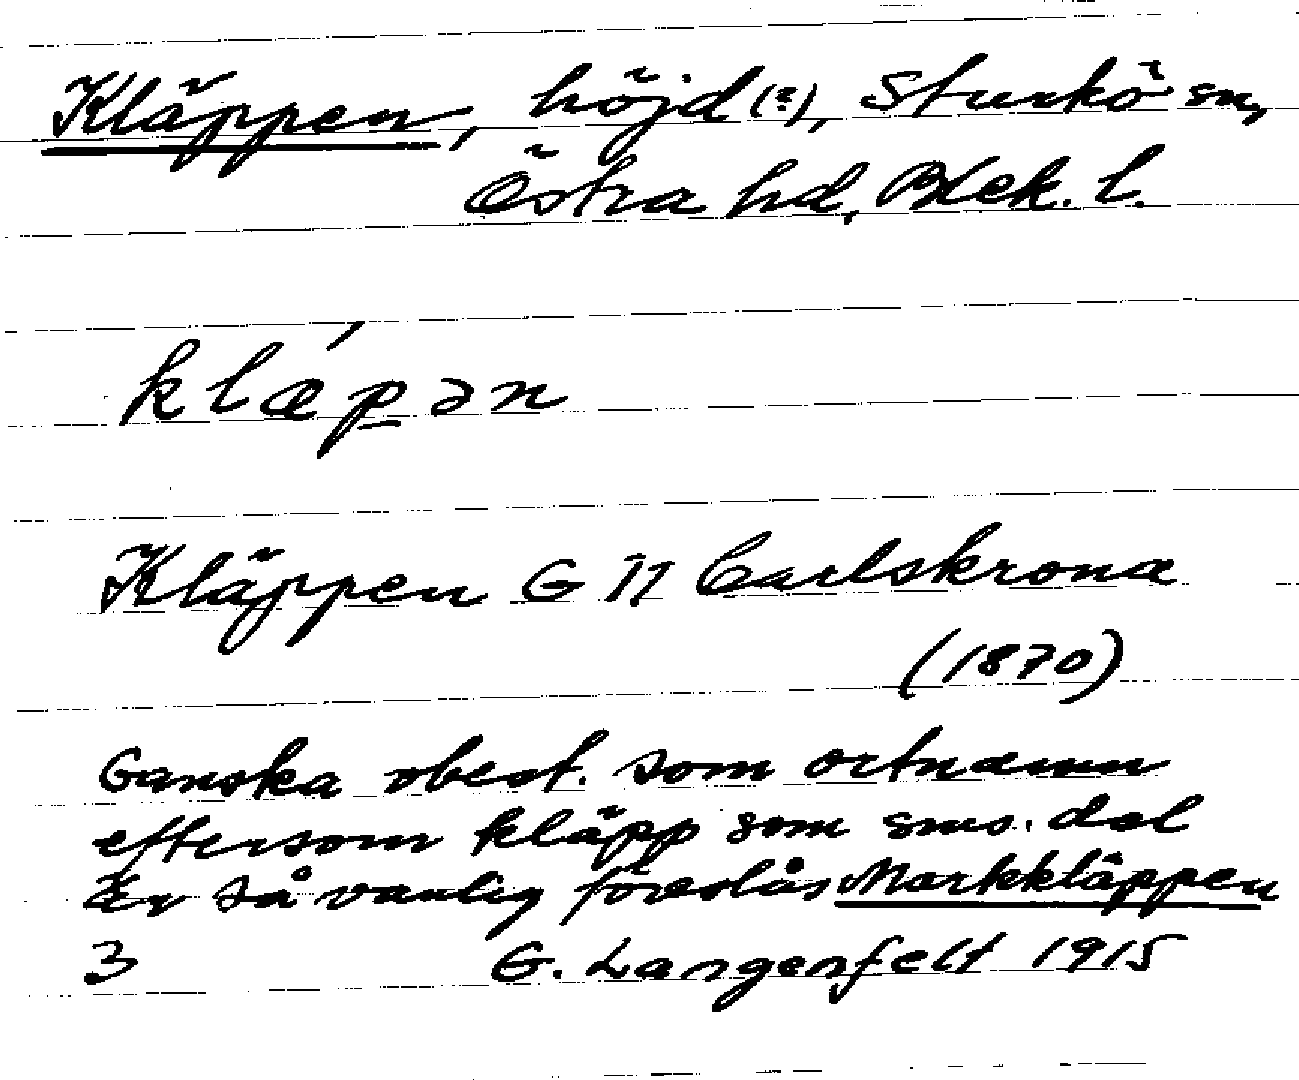 Kläppen, höjd(?), Sturkö sn,
Östra hd, Blek. l.
klǽp̲ən
Kläppen G II Carlskrona
(1870)
Ganska obest. som ortnamn
eftersom kläpp som sms. del
är så vanlig föreslås Markkläppen
3 G. Langenfelt 1915